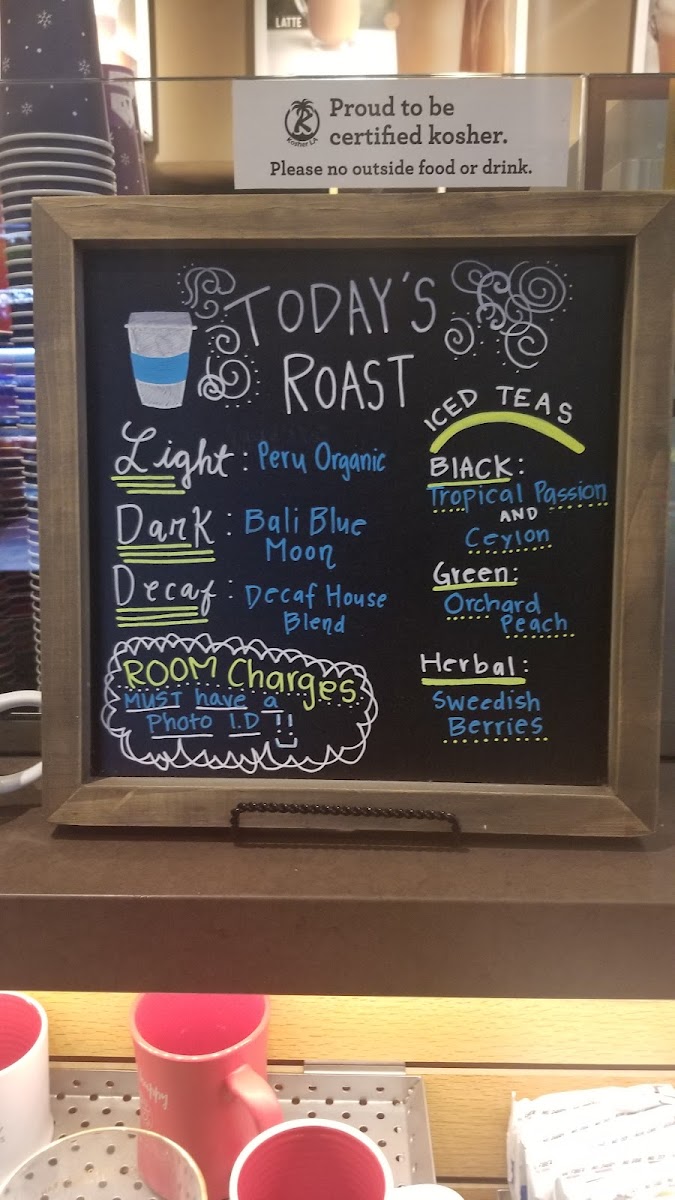 LATTE
Kosher LA
Proud to be
certified kosher.
Please no outside food or drink.
TODAY'S
ROAST
Light: Peru Organic
Dark: Bali Blue
Moon
Decaf: Decaf House
Blend
ROOM Charges
MUST have a
Photo I.D !!
ICED TEAS
BlACK:
Tropical Passion
AND
Ceylon
Green:
Orchard
Peach
Herbal:
Sweedish
Berries